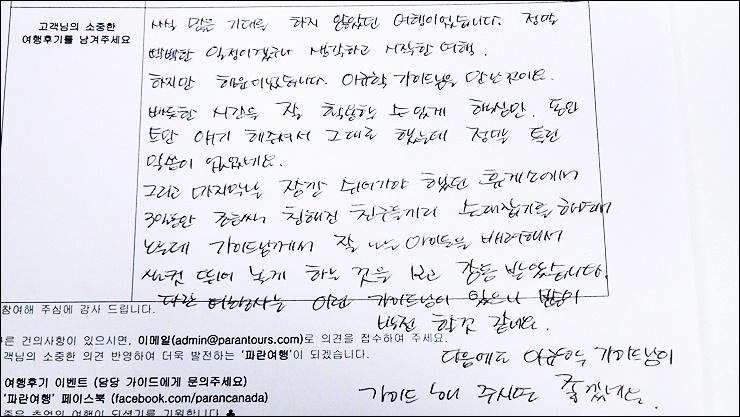 고객님의 소중한
여행후기를 남겨주세요
사실 많은 기대를 하지 않았던 여행이었습니다. 정말
빡빡한 일정이겠거니 생각하고 시작한 여행.
하지만 행운이었습니다. 가이드님을 만난 것이요.
빠듯한 시간을 잘 활용할 수 있게 해주시면.
얘기 해주셔서 그대로 했는데 정말 틀린
말씀이 없었네요.
그리고 마지막날 잠깐 쉬어가야 했던 휴게소에서
3일동안 조금씩 친해진 친구들끼리 술래잡기를 하며
노는데 가이드님께서 잘 노는 아이들을 배려해서
실컷 뛰어 놀게 하는 것을 보고 감동 받았습니다.
다른 여행사는 이런 가이드님이 있으니
발전 할것 같네요.
다음에도 가이드님이
가이드 해 주시면 좋겠네요.
참여해 주심에 감사 드립니다.
른 건의사항이 있으시면, 이메일(admin@parantours.com)로 의견을 접수하여 주세요.
객님의 소중한 의견 반영하여 더욱 발전하는 '파란여행'이 되겠습니다.
여행후기 이벤트 (담당 가이드에게 문의주세요)
'파란여행' 페이스북 (facebook.com/parancanada)
좋은 추억의 여행이 되셨기를 기원합니다.♣